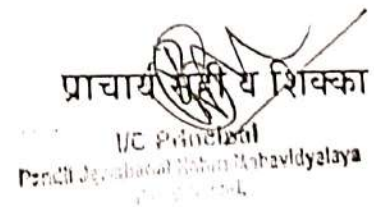 प्राचार्य सही व शिक्का
I/C Principal
Pandit Jawaharlal Nehru Mahavidyalaya